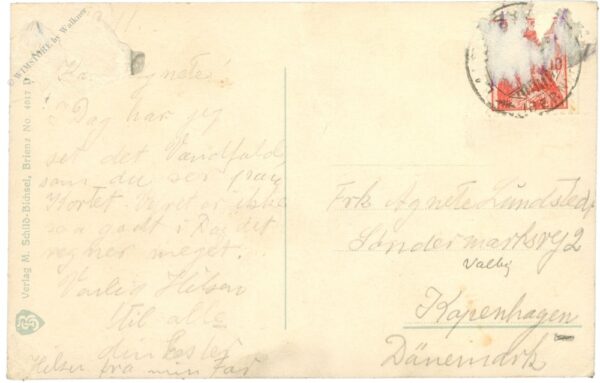 © WIMSTORE by Walkner
Verlag M. Schild-Bichsel, Brienz No. 4017
Agnete!
I Dag har jeg
set det Vandfald,
som du ser paa
Kortet. Vejret er ikke
saa godt i Dag det
regner meget.
Venlig Hilsen
til alle
din Ester
Hilsen fra min Far
Frk Agnete Lundsted
Søndermarksvej 2
Valby
Kopenhagen
Dänemark